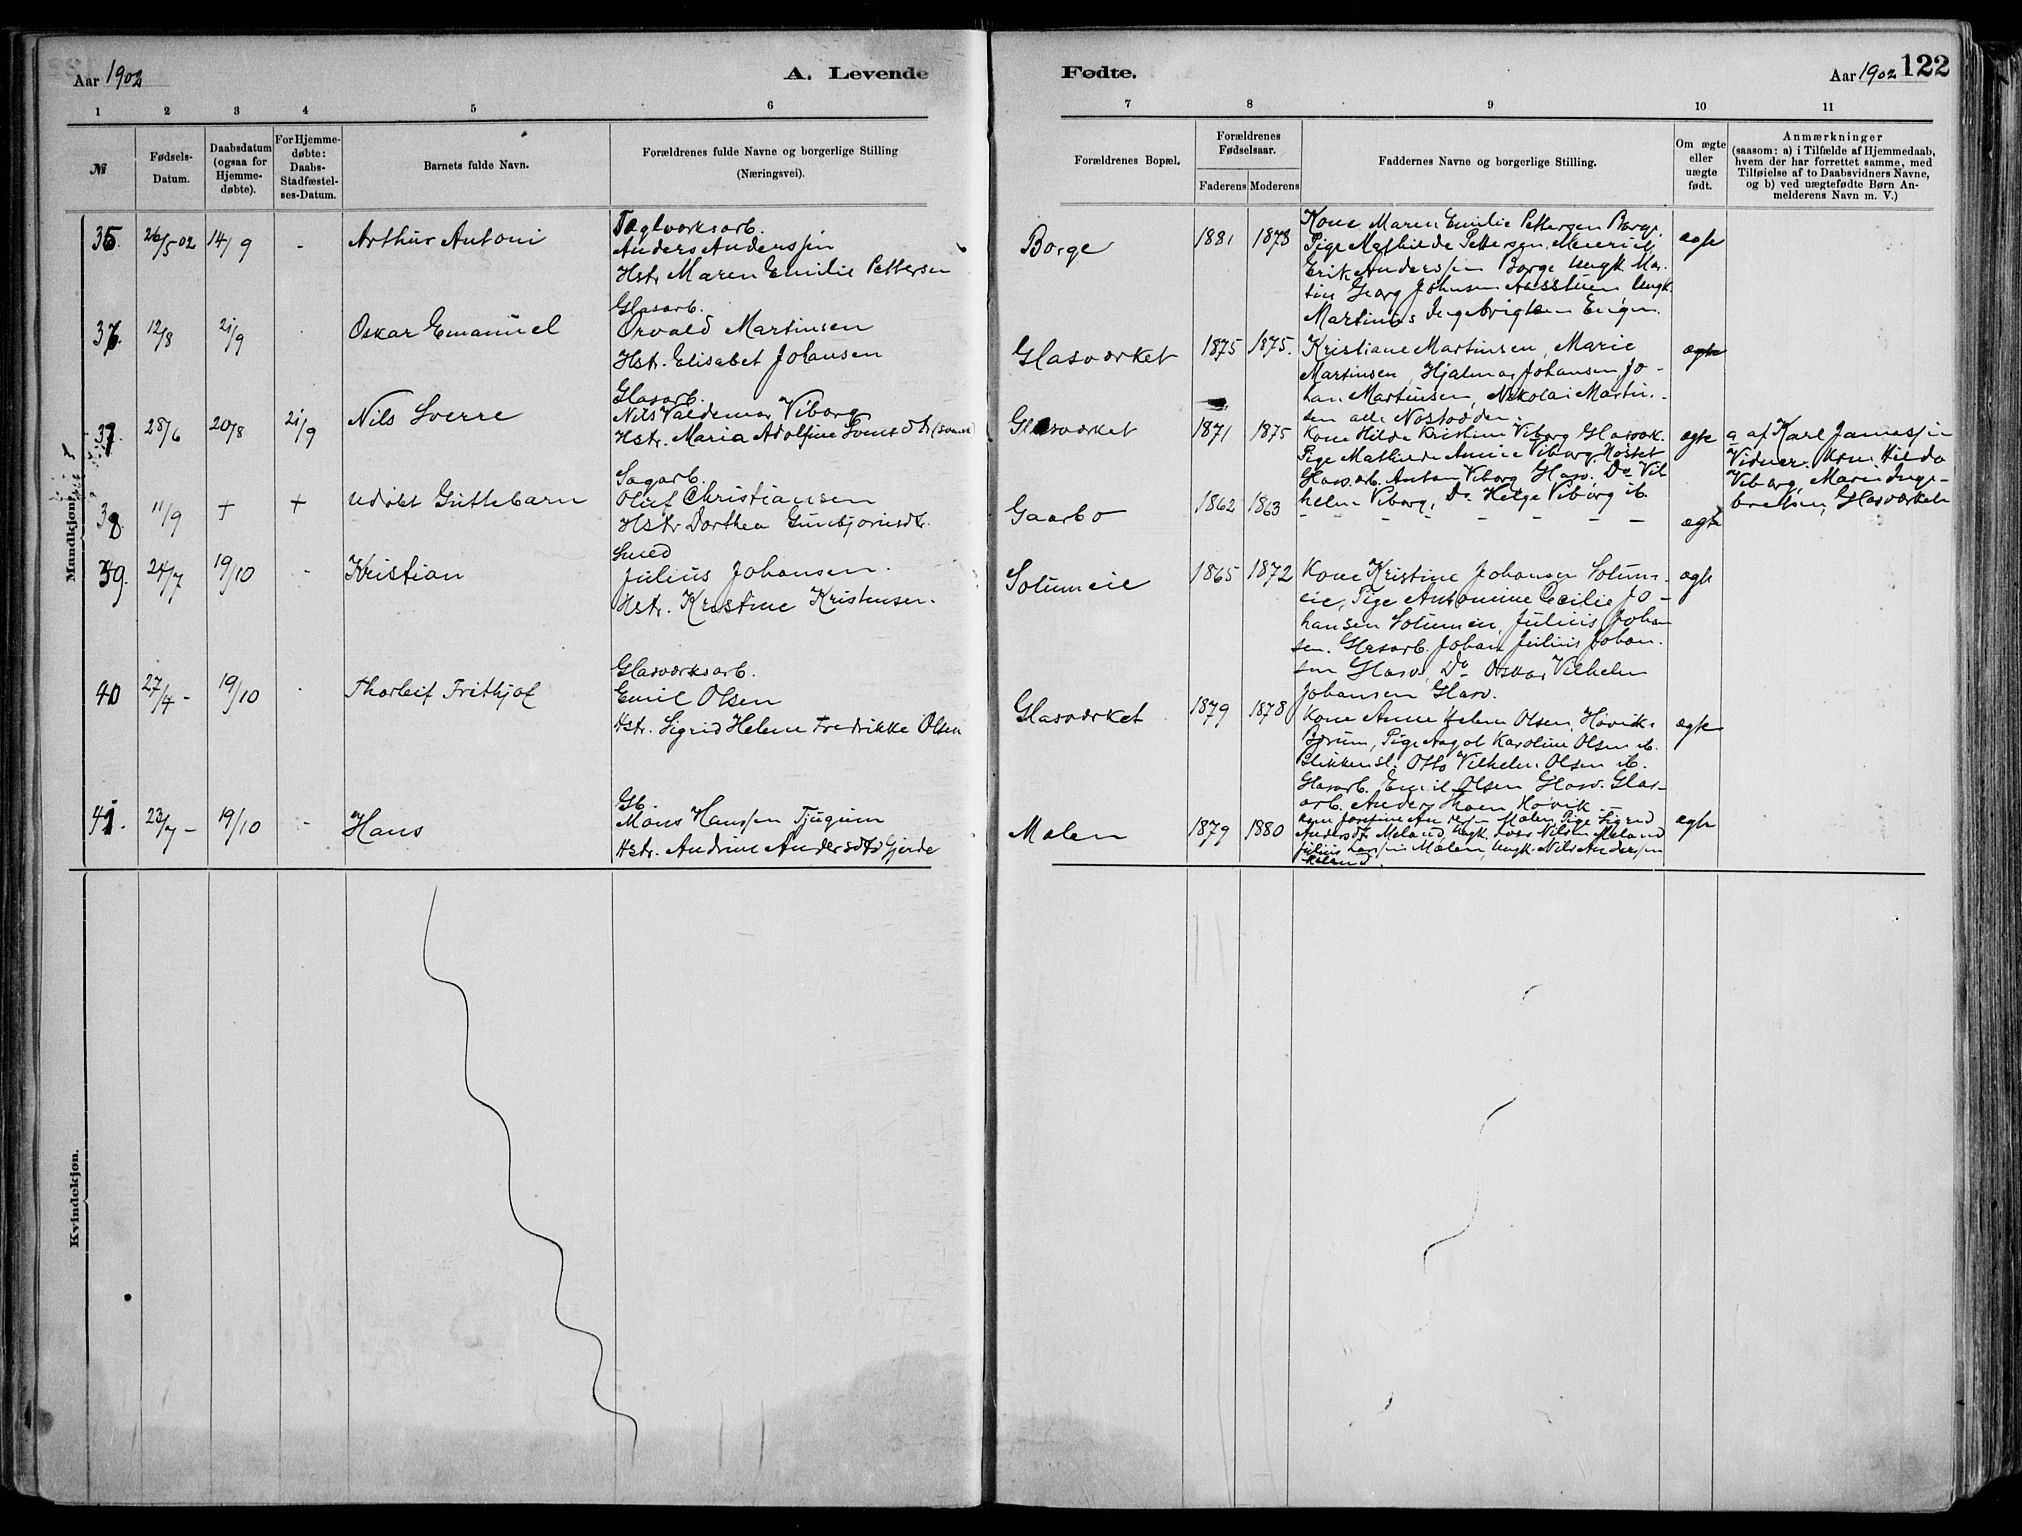 Aar 1902
A. Levende
Fødte.
Aar 1902 122
1 2 3 4 5 6 7 8 9 10 11
№
Fødsels-
Datum.
Daabsdatum
(ogsaa for
Hjemme-
døbte).
For Hjemme-
døbte:
Daabs-
Stadfæstel-
ses-Datum.
Barnets fulde Navn.
Forældrenes fulde Navne og borgerlige Stilling
(Næringsvei).
Forældrenes Bopæl.
Forældrenes
Fødselsaar.
Faderens Moderens
Faddernes Navne og borgerlige Stilling.
Om ægte
eller
uægte
født.
Anmærkninger
(saasom: a) i Tilfælde af Hjemmedaab,
hvem der har forrettet samme, med
Tilføielse af to Daabsvidners Navne,
og b) ved uægtefødte Børn An-
melderens Navn m. V.)
Mandkjøn.
35. 26/5 02 14/9 - Arthur Antoni
Teglværksarb.
Anders Anderssen
Hstr. Maren Emilie Pettersen
Borge 1881 1873
Kone Maren Emilie Pettersen Borge.
Pige Mathilde Pettersen
Erik Anderssen Borge Ungk. Mar-
tin Georg Johnsen Ungk.
Martinius
ægte
36. 12/8 21/9 Oskar Emanuel
Glasarb.
Orvald Martinsen
Hstr. Elisabet Johansen
Glasværket 1875 1875.
Kristiane Martinsen, Marie
Martinsen, Hjalmar Johansen, Jo-
han Martinsen, Nikolai Martin-
sen alle Nøstodden.
ægte
37. 28/6 20/8 21/9 Nils Sverre
Glasarb.
Nils Valdemar Viborg
Hstr. Maria Adolfine Svensdtr (svensk)
Glasværket 1871 1875
Kone Hilda Kristine Viborg Glasværk.
Pige Mathilde Amine Viborg, Nøstet
Glasarb. Anton Viborg Glasv. Do Vil-
helm Viborg, Do Helge Viborg ib.
ægte
a af Karl Jonassen
Vidner: Kone Hilda
Viborg, Maren Inge-
bretsen, Glasværket
38 11/9 + + Udøbt Guttebarn
Sagarb.
Oluf Christiansen
Hstr Dorthea Gunbjørnsdtr.
Gaarbo 1862 1863 - - - - - - - ægte
39. 24/7 19/10 - Kristian
Smed
Julius Johansen.
Hstr. Kristine Kristensen.
Solumeie 1865 1872
Kone Kristine Johansen Solum-
eie, Pige Antonine Cecilie Jo-
hansen Solumeie, Julius Johan-
sen. Glasarb. Johan Julius Johan-
sen Glasv. Do Oskar Vilhelm
Johansen Glasv.
ægte
40 27/4 - 19/10 - Thorleif Frithjof
Glasværksarb.
Emil Olsen
Hstr. Sigrid Helene Fredrikke Olsen
Glasværket 1879 1878
Kone Anne Helene Olsen, Høvik
Bærum, Pige Aagot Karoline Olsen ib.
Otto Vilhelm Olsen ib.
Glasarb. Emil Olsen Glasv. Glas-
arb. Anders Høvik
ægte
41. 23/7 - 19/10 - Hans
Gb.
Mons Hanssen Tjugum
Hstr. Andrine Andersdtr Gjerde
Mælen 1879 1880
Kone Josefine Anderssen Mælen, Pige Sigrid
Andersdtr. Meland, Ungk. Nilsen Meland
Julius Hanssen Mælen, Ungk. Nils Anderssen
Meland.
ægte
Kvindekjøn.